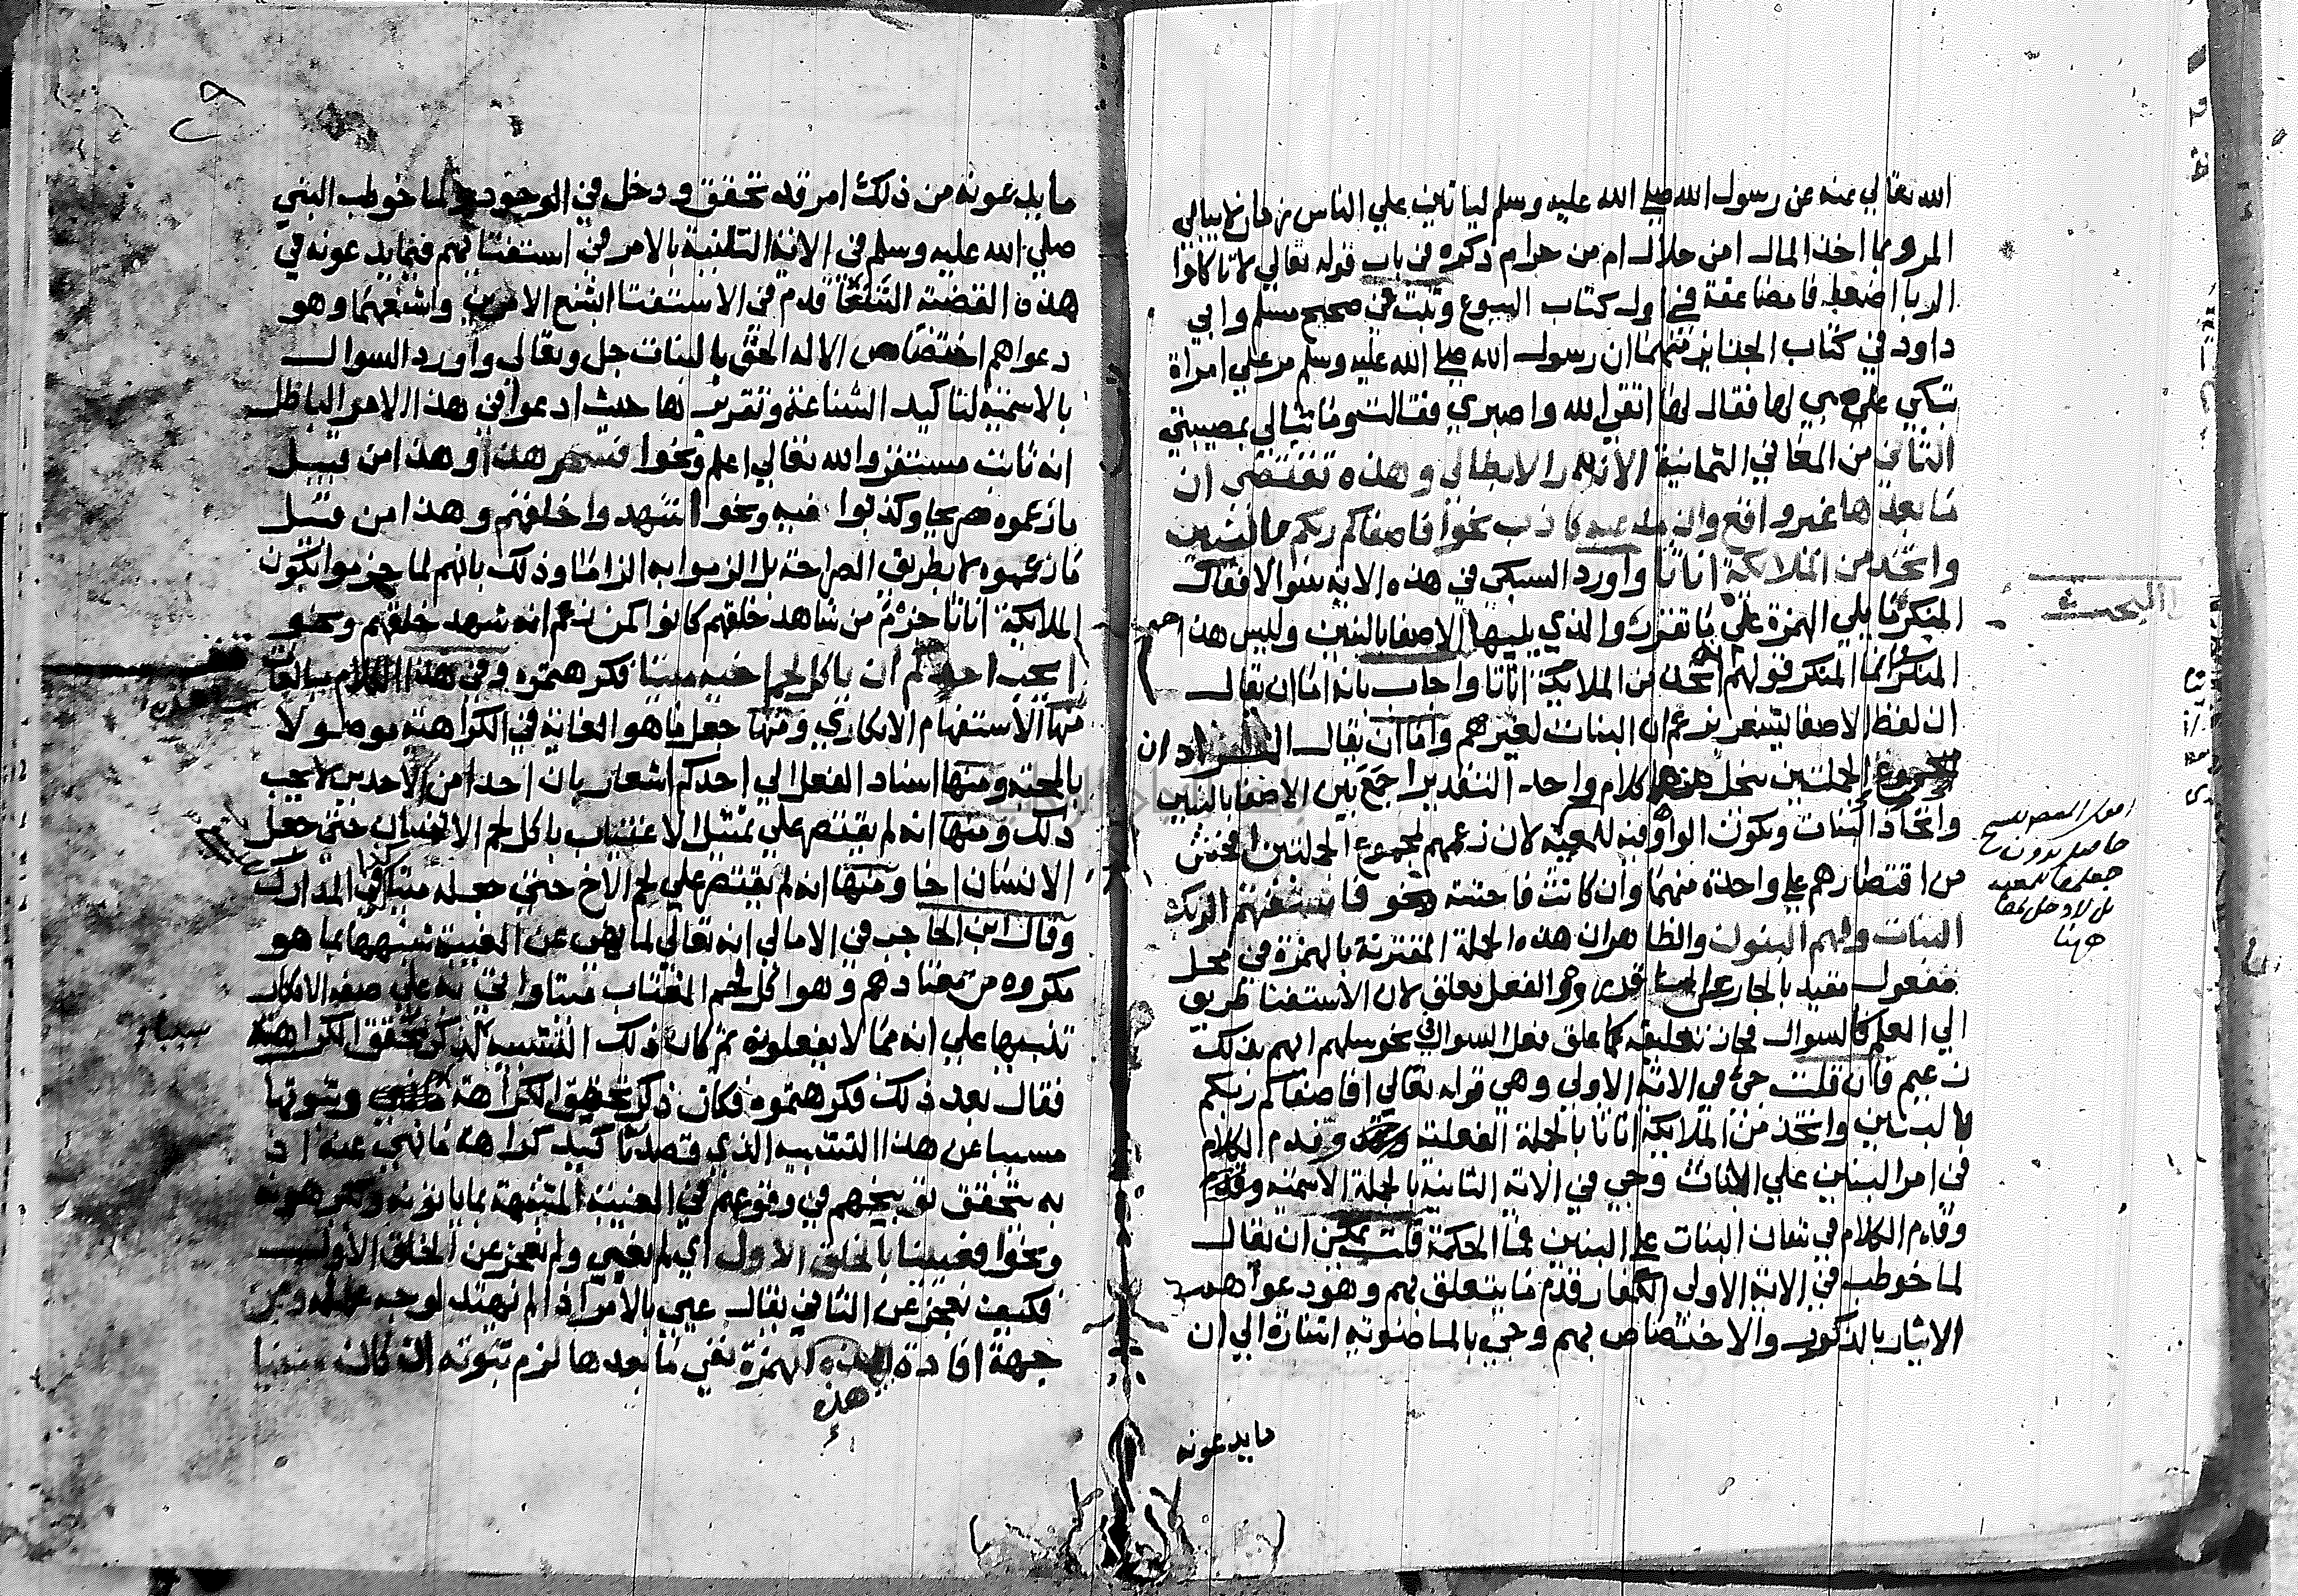 الله تعالي عنه عن رسول الله صلي الله عليه وسلم لياتين علي الناس زمان لا يبالي
المرء بما اخذ المال امن حلال ام من حرام ذكره في باب قوله تعالي لا تاكلوا
الربا اضعافا مضاعفة في اول كتاب البيوع وثبت في صحيح مسلم وابي
داود في كتاب الجنايز منهما ان رسول الله صلي الله عليه وسلم مر علي امراة
تبكي علي صبي لها فقال لها اتقي الله واصبري فقالت وما تبالي بمصيبتي
الثاني من المعاني الثمانية الانكار الابطالي وهذه تقتضي ان
ما بعدها غير واقع وان مدعيه كاذب نحو افاصفاكم ربكم بالبنين
واتخذ من الملايكة اناثا واورد السبكي في هذه الاية سوالا فقال
المنكر ما يلي الهمزة علي ما تقرر والذي يليها الاصفا بالبنين وليس هذا هو
المنكر انما المنكر قولهم اتخذ من الملايكة اناثا واجاب بانه اما ان يقال
ان لفظ الاصفا ليشعر بزعم ان البنات لغيرهم واما ان يقال المراد ان
مجموع الجملتين كلام واحد التقدير اجمع بين الاصفا بالبنين
واتخاذ البنات وتكون الواو فيه للمعية لان زعمهم لمجموع الجملتين افحش
من اقتصارهم علي واحدة منهما وان كانت فاحشة ونحو فاستفتهم الربك
البنات ولهم البنون والظاهر ان هذه الجملة المقترنة بالهمزة في محل
مفعول مقيد بالجار علي الفعل معلق لان الاستفتا طريق
الي العلم كالسوال فجاز تعليقه كما علق فعل السوال في نحو سلهم ايهم بذلك
زعيم فان قلت جئ في الاية الاولي وهي قوله تعالي افاصفاكم ربكم
بالبنين واتخذ من الملايكة اناثا بالجملة الفعلية وقدم الكلام
في امر البنين علي الاناث وجئ في الاية الثانية بالجملة الاسمية
وقدم الكلام في شان البنات علي البنين فما الحكمة قلت يمكن ان يقال
لما خوطب في الاية الاولي الكفار قدم ما يتعلق بهم وهو دعواهم
الايثار بالذكور والاختصاص بهم وجئ بالماضوية اشارة الي ان
ما يدعونه
البحث
حاصل بدون
جعلها للمعية
بل لا دخل لها
ههنا
ما يدعونه من ذلك امر قد تحقق ودخل في الوجود ولما خوطب النبي
صلي الله عليه وسلم في الاية الثانية بالامر في استفتايهم فيما يدعونه في
هذه القضية الشنعا قدم في الاستفتا اشنع الامرين واشنعهما وهو
دعواهم اختصاص الاله الحق بالبنات جل وتعالي واورد السوال
بالاسمية لتاكيد الشناعة وتقريرها حيث ادعوا في هذا الامر الباطل
انه ثابت مستقر والله تعالي اعلم ونحو افسحر هذا وهذا من قبيل
ما زعموه صريحا وكذبوا فيه ونحو اشهدوا خلقهم وهذا من قبيل
ما زعموه لا بطريق الصراحة بل الزموا به الزاما وذلك بانهم لما جزموا بكون
الملايكة اناثا جزم من شاهد خلقهم كانوا كمن زعم انه شهد خلقهم ونحو
ايحب احدكم ان ياكل لحم اخيه ميتا فكرهتموه وفي هذا الكلام مبالغات
منها الاستفهام الانكاري ومنها جعل ما هو الغاية في الكراهية موصولا
بالمحبة ومنها اسناد الفعل الي احدكم اشعار بان احدا من الاحدين لا يحب
ذلك ومنها انه لم يقتصر علي تمثيل الاغتياب باكل لحم الانسان حتي جعل
الانسان اخا ومنها انه لم يقتصر علي لحم الاخ حتي جعله ميتا كذا في المدارك
وقال ابن الحاجب في الامالي انه تعالي لما نهي عن الغيبة شبهها بما هو
مكروه من معتادهم وهو اكل لحم المغتاب ميتا واتي به علي صفة الانكار
تنبيها علي انه مما لا يفعلونه ثم كان ذلك التشبيه لذكر تحقق الكراهة
فقال بعد ذلك فكرهتموه فكان ذكر تحقق الكراهة وثبوتها
مسببا عن هذا التشبيه الذي قصد تاكيد كراهة ما نهي عنه اذ
به يتحقق توبيخهم في وقوعهم في الغيبة المشبهة بما يابونه ويكرهونه
ونحو افعيينا بالخلق الاول اي لم نعي ولم نعجز عن الخلق الاول
فكيف نعجز عن الثاني يقال عيي بالامر اذا لم يهتد لوجه عمله ومن
جهة افادة هذه الهمزة نفي ما بعدها لزم ثبوته ان كان منفيا
هذه